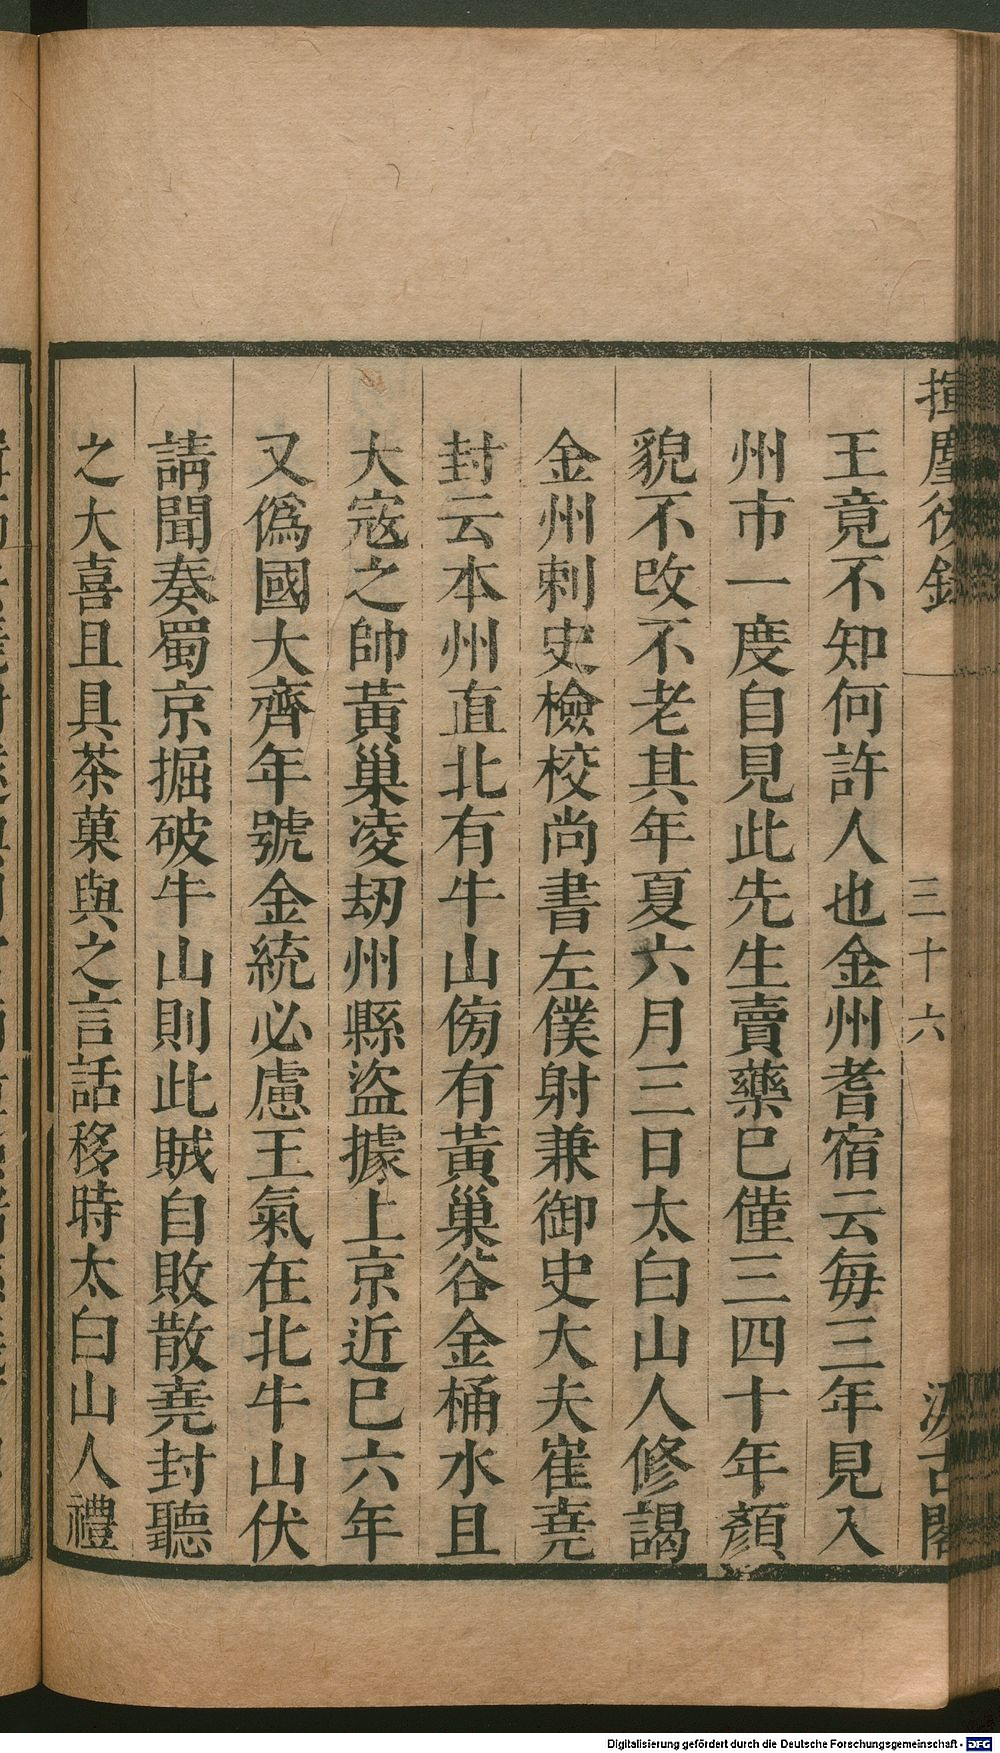 揮麈後錄
三十六
汲古閣
王竟不知何許人也金州耆宿云每三年見入
州市一度自見此先生賣藥已僅三四十年顏
貌不改不老其年夏六月三日太白山人修謁
金州刺史檢校尚書左僕射兼御史大夫崔堯
封云本州直北有牛山傍有黃巢谷金桶水且
大寇之帥黃巢凌刼州縣盜據上京近已六年
又僞國大齊年號金統必慮王氣在北牛山伏
請聞奏蜀京掘破牛山則此賊自敗散堯封聽
之大喜且具茶菓與之言話移時太白山人禮
Digitalisierung gefördert durch die Deutsche Forschungsgemeinschaft - DFG